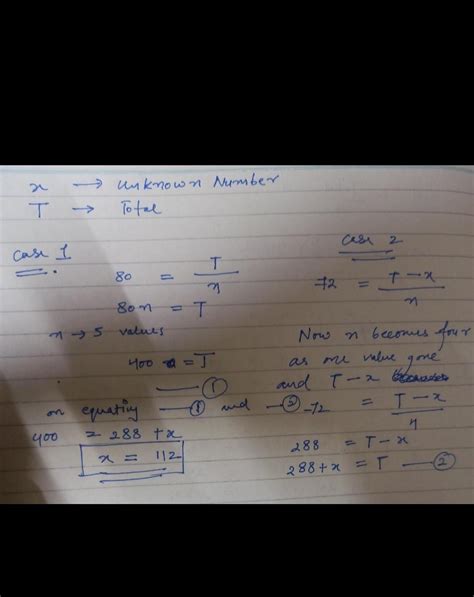 x → Unknown Number
T → Total
Case 1
80 = T/n
80n = T
n → 5 values
400 = T
— ①
on equating — ① and — ②
400 = 288 + x
x = 112
Case 2
72 = T - x/n
Now n becomes four
as one value gone
and T - x
72 = T - x/4
288 = T - x
288 + x = T — ②